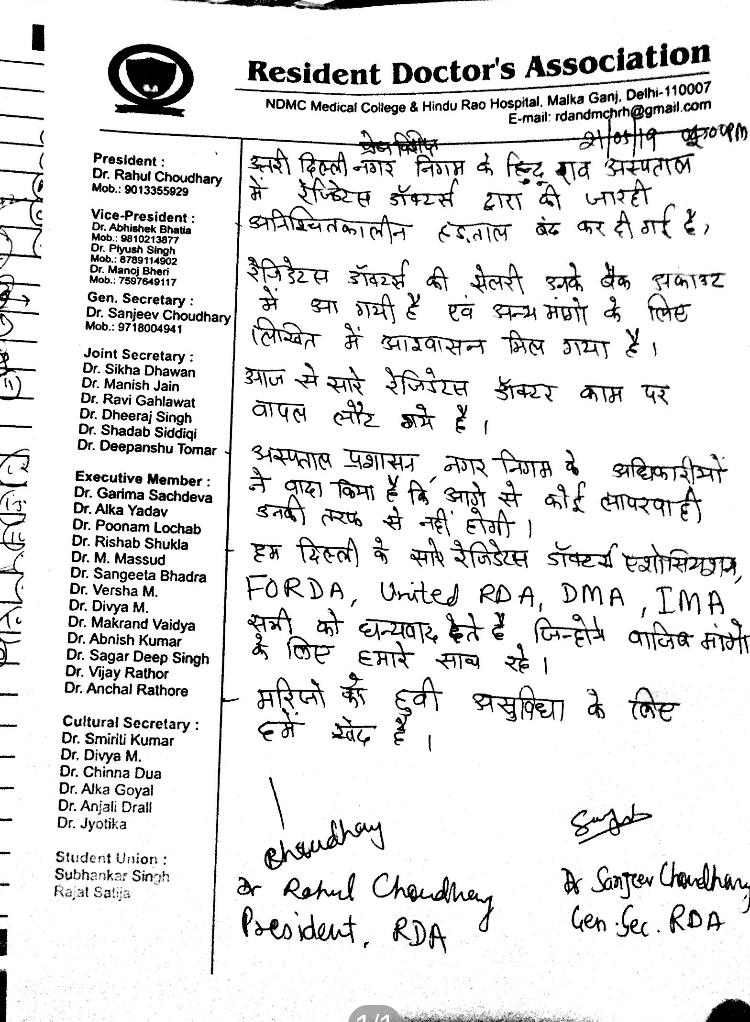 Resident Doctor's Association
NDMC Medical College & Hindu Rao Hospital, Malka Ganj, Delhi-110007
E-mail: rdandmchrh@gmail.com
21/05/19
President :
Dr. Rahul Choudhary
Mob.: 9013355929
Vice-President :
Dr. Abhishek Bhatia
Mob.: 9810213877
Dr. Piyush Singh
Mob.: 8789114902
Dr. Manoj Bheri
Mob.: 7597649117
Gen. Secretary :
Dr. Sanjeev Choudhary
Mob.: 9718004941
Joint Secretary :
Dr. Sikha Dhawan
Dr. Manish Jain
Dr. Ravi Gahlawat
Dr. Dheeraj Singh
Dr. Shadab Siddiqi
Dr. Deepanshu Tomar
Executive Member :
Dr. Garima Sachdeva
Dr. Alka Yadav
Dr. Poonam Lochab
Dr. Rishab Shukla
Dr. M. Massud
Dr. Sangeeta Bhadra
Dr. Versha M.
Dr. Divya M.
Dr. Makrand Vaidya
Dr. Abnish Kumar
Dr. Sagar Deep Singh
Dr. Vijay Rathor
Dr. Anchal Rathore
Cultural Secretary :
Dr. Smiriti Kumar
Dr. Divya M.
Dr. Chinna Dua
Dr. Alka Goyal
Dr. Anjali Drall
Dr. Jyotika
Student Union :
Subhankar Singh
Rajat Satija
दिल्ली नगर निगम के हिन्दु राव अस्पताल
में रेजिडेंटस डॉक्टर्स द्वारा की जारही
अनिश्चितकालीन हड़ताल बंद कर दी गई है,
रेजिडेंटस डॉक्टर्स की सेलरी उनके बैंक अकाउंट
में आ गयी है एवं अन्य मांगो के लिए
लिखित में आश्वासन मिल गया है।
आज से सारे रेजिडेंटस डॉक्टर काम पर
वापस लौट गये है।
अस्पताल प्रशासन, नगर निगम के अधिकारीयों
ने वादा किया है कि आगे से कोई लापरवाही
उनकी तरफ से नहीं होगी।
हम दिल्ली के सारे रेजिडेंटस डॉक्टर्स एशोसियशन,
FORDA, United RDA, DMA, IMA
सभी को धन्यवाद देते है जिन्होने वाजिब मांगो
के लिए हमारे साथ रहे।
मरिजो को हुवी असुविधा के लिए
हमें खेद है।
Choudhary
Dr Rahul Choudhary
President, RDA
Dr Sanjeev Choudhary
Gen. Sec. RDA
1/1